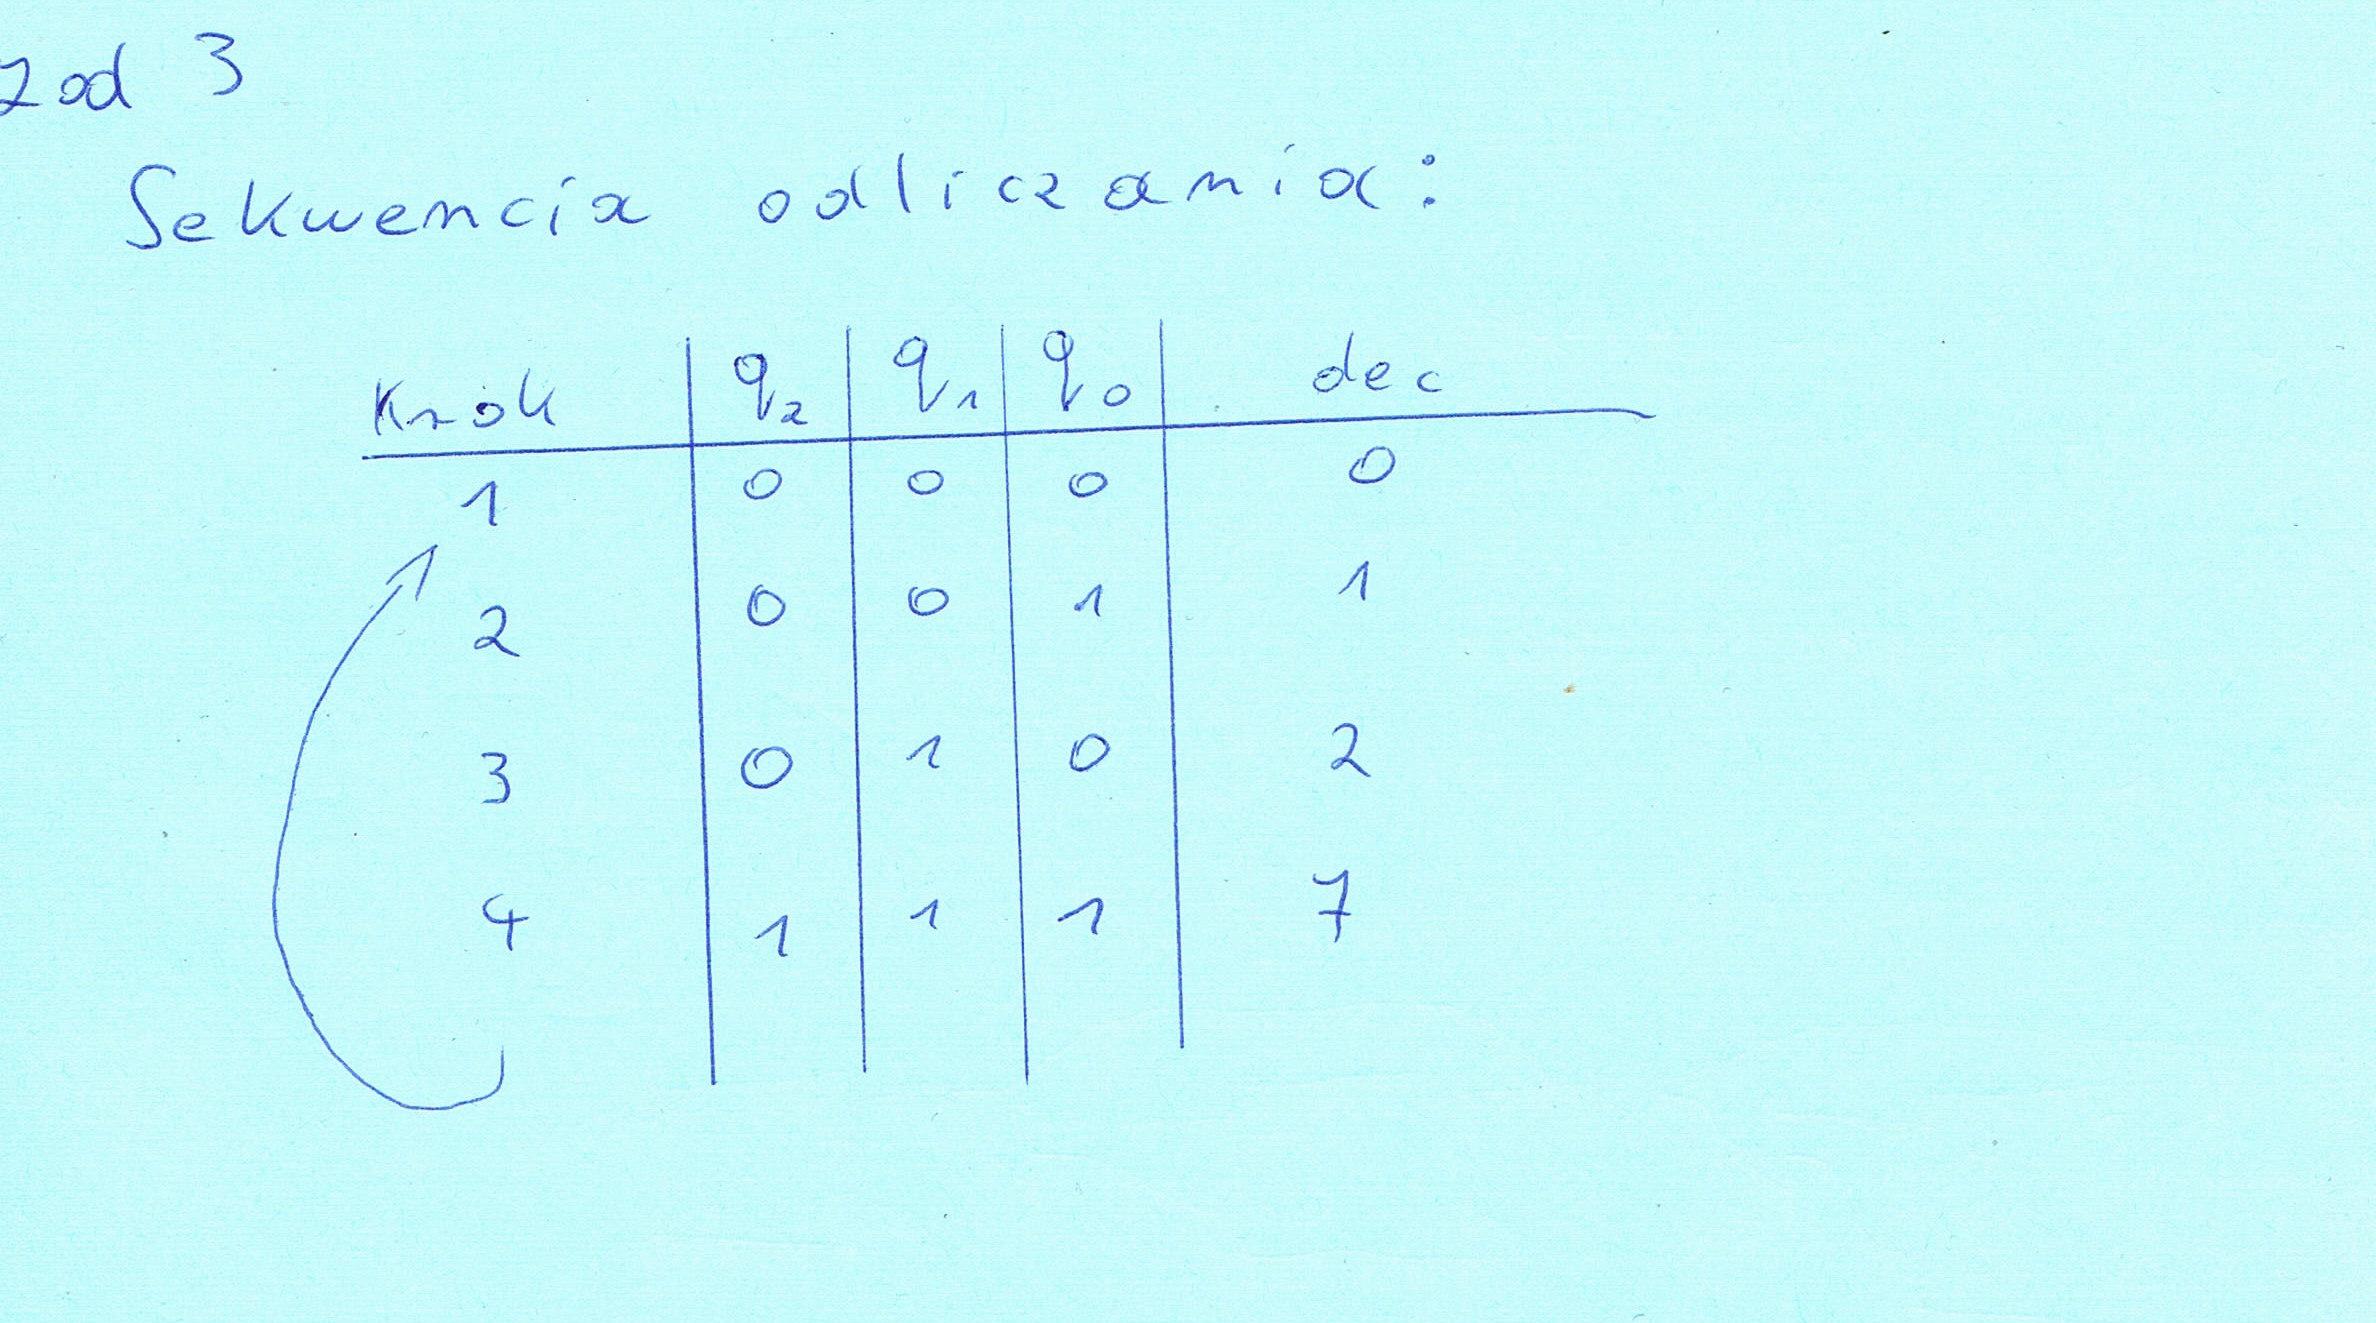 zad 3
Sekwencia odliczania:
Krok q2 q1 q0 dec
1 0 0 0 0
2 0 0 1 1
3 0 1 0 2
4 1 1 1 7